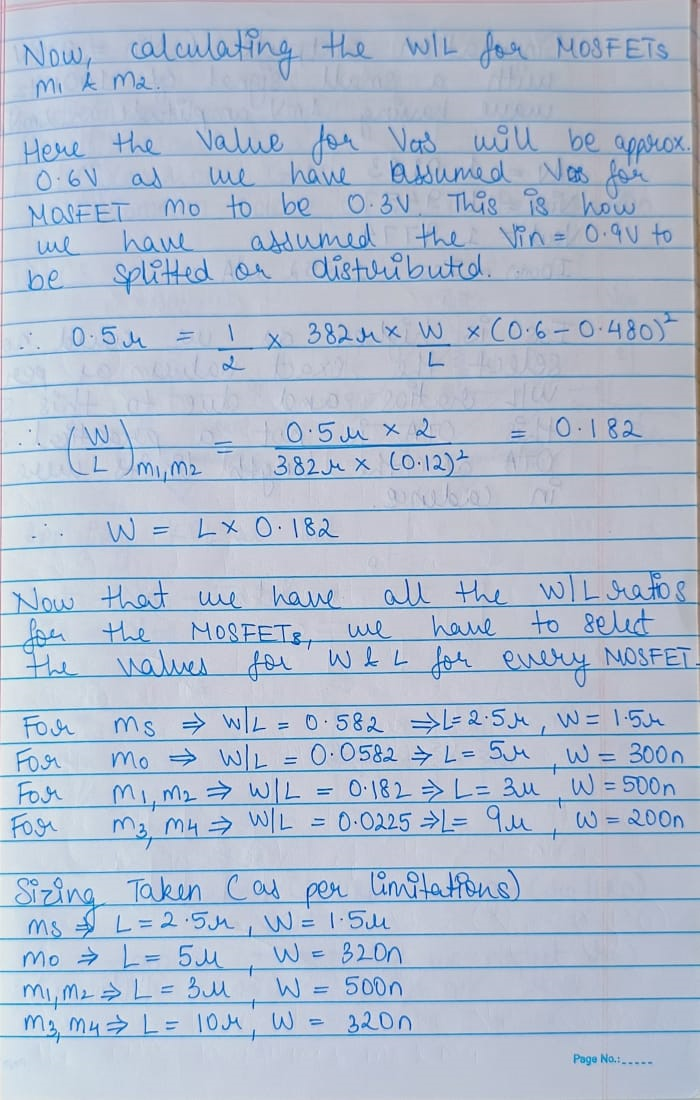 Now, calculating the W/L for MOSFETs
M1 & M2.
Here the value for VGS will be approx.
0.6V as we have assumed VGS for
MOSFET M0 to be 0.3V. This is how
we have assumed the Vin = 0.9V to
be splitted or distributed.
∴ 0.5μ = 1/2 × 382μ × W/L × (0.6 - 0.480)²
∴ (W/L)M1,M2 = 0.5μ × 2 / 382μ × (0.12)² = 0.182
∴ W = L × 0.182
Now that we have all the W/L ratios
for the MOSFETs, we have to select
the values for W & L for every MOSFET.
For M5 ⇒ W/L = 0.582 ⇒ L = 2.5μ, W = 1.5μ
For M0 ⇒ W/L = 0.0582 ⇒ L = 5μ, W = 300n
For M1, M2 ⇒ W/L = 0.182 ⇒ L = 3μ, W = 500n
For M3, M4 ⇒ W/L = 0.0225 ⇒ L = 9μ, W = 200n
Sizing Taken (as per limitations)
M5 ⇒ L = 2.5μ, W = 1.5μ
M0 ⇒ L = 5μ, W = 320n
M1, M2 ⇒ L = 3μ, W = 500n
M3, M4 ⇒ L = 10μ, W = 320n
Page No.:_____